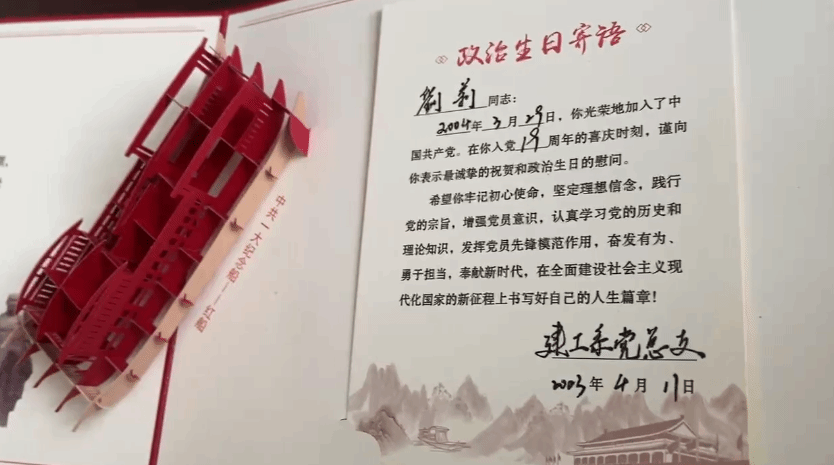 政治生日寄语
劉莉同志：
2004年3月29日，你光荣地加入了中
国共产党。在你入党19周年的喜庆时刻，谨向
你表示最诚挚的祝贺和政治生日的慰问。
希望你牢记初心使命，坚定理想信念，践行
党的宗旨，增强党员意识，认真学习党的历史和
理论知识，发挥党员先锋模范作用，奋发有为、
勇于担当，奉献新时代，在全面建设社会主义现
代化国家的新征程上书写好自己的人生篇章！
建工系党总支
2003年4月11日
中共一大纪念船——红船